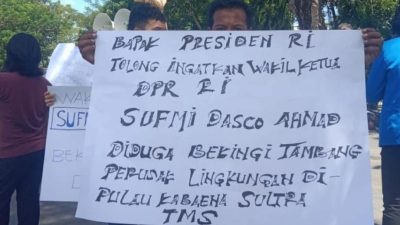 BAPAK PRESIDEN RI
TOLONG INGATKAN WAKIL KETUA
DPR RI
SUFMI DASCO AHMAD
DIDUGA BEKINGI TAMBANG
PERUSAK LINGKUNGAN DI-
PULAU KABAENA SULTRA
TMS
SUFM
BEK